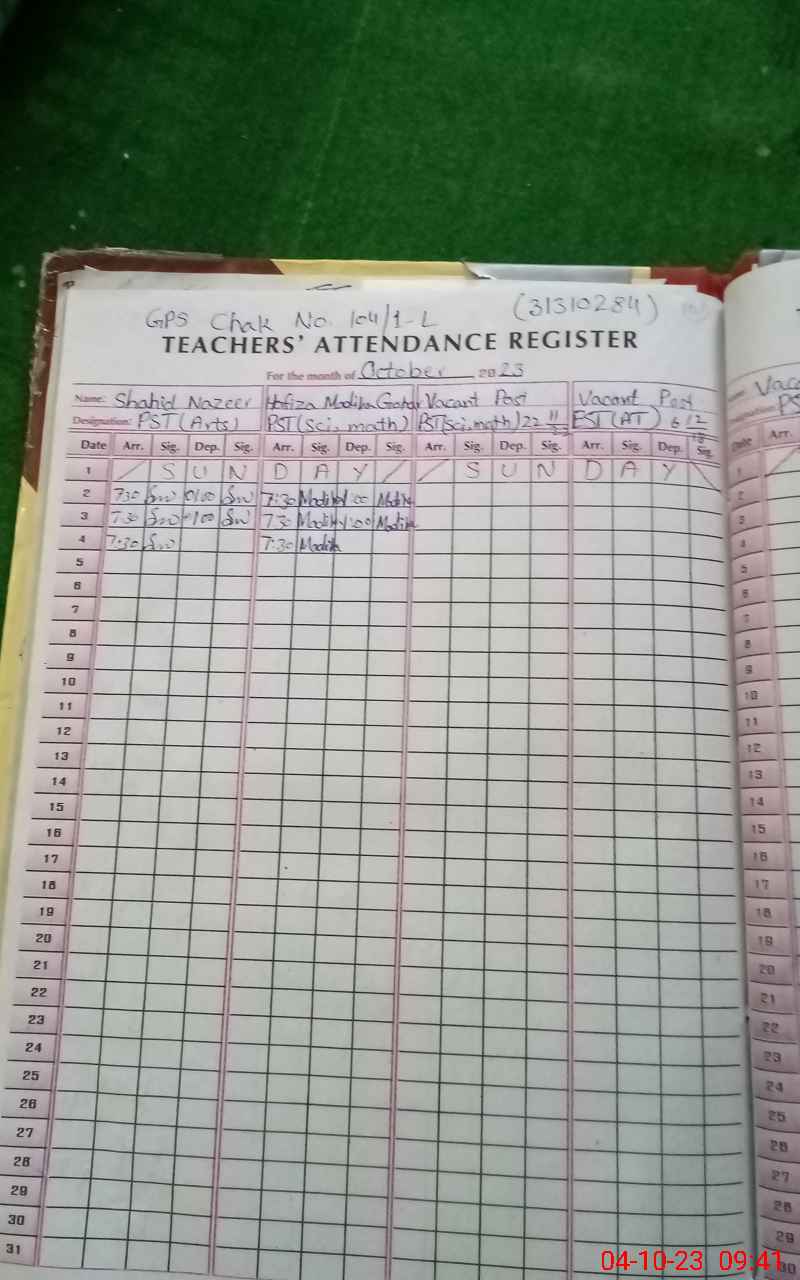 GPS Chak No. 104/1-L (31310284)
TEACHERS' ATTENDANCE REGISTER
For the month of October 2023
Name: Shahid Nazeer Hafiza Madiha Vacant Post Vacant Post
Designation: PST (Arts) PST (Sci, math) PST (Sci, math) 22 EST (AT)
Date Arr. Sig. Dep. Sig. Arr. Sig. Dep. Sig. Arr. Sig. Dep. Sig. Arr. Sig. Dep. Sig.
1 S U N D A Y S U N D A Y
2 7:30 7:30 Madiha 1:00 Madiha
3 7:30 1:00 7:30 Madiha 1:00 Madiha
4 7:30 7:30 Madiha
5
6
7
8
9
10
11
12
13
14
15
16
17
18
19
20
21
22
23
24
25
26
27
28
29
30
31
Vaca
PS
Date Arr.
1
2
3
4
5
6
7
8
9
10
11
12
13
14
15
16
17
18
19
20
21
22
23
24
25
26
27
28
29
30
04-10-23 09:41